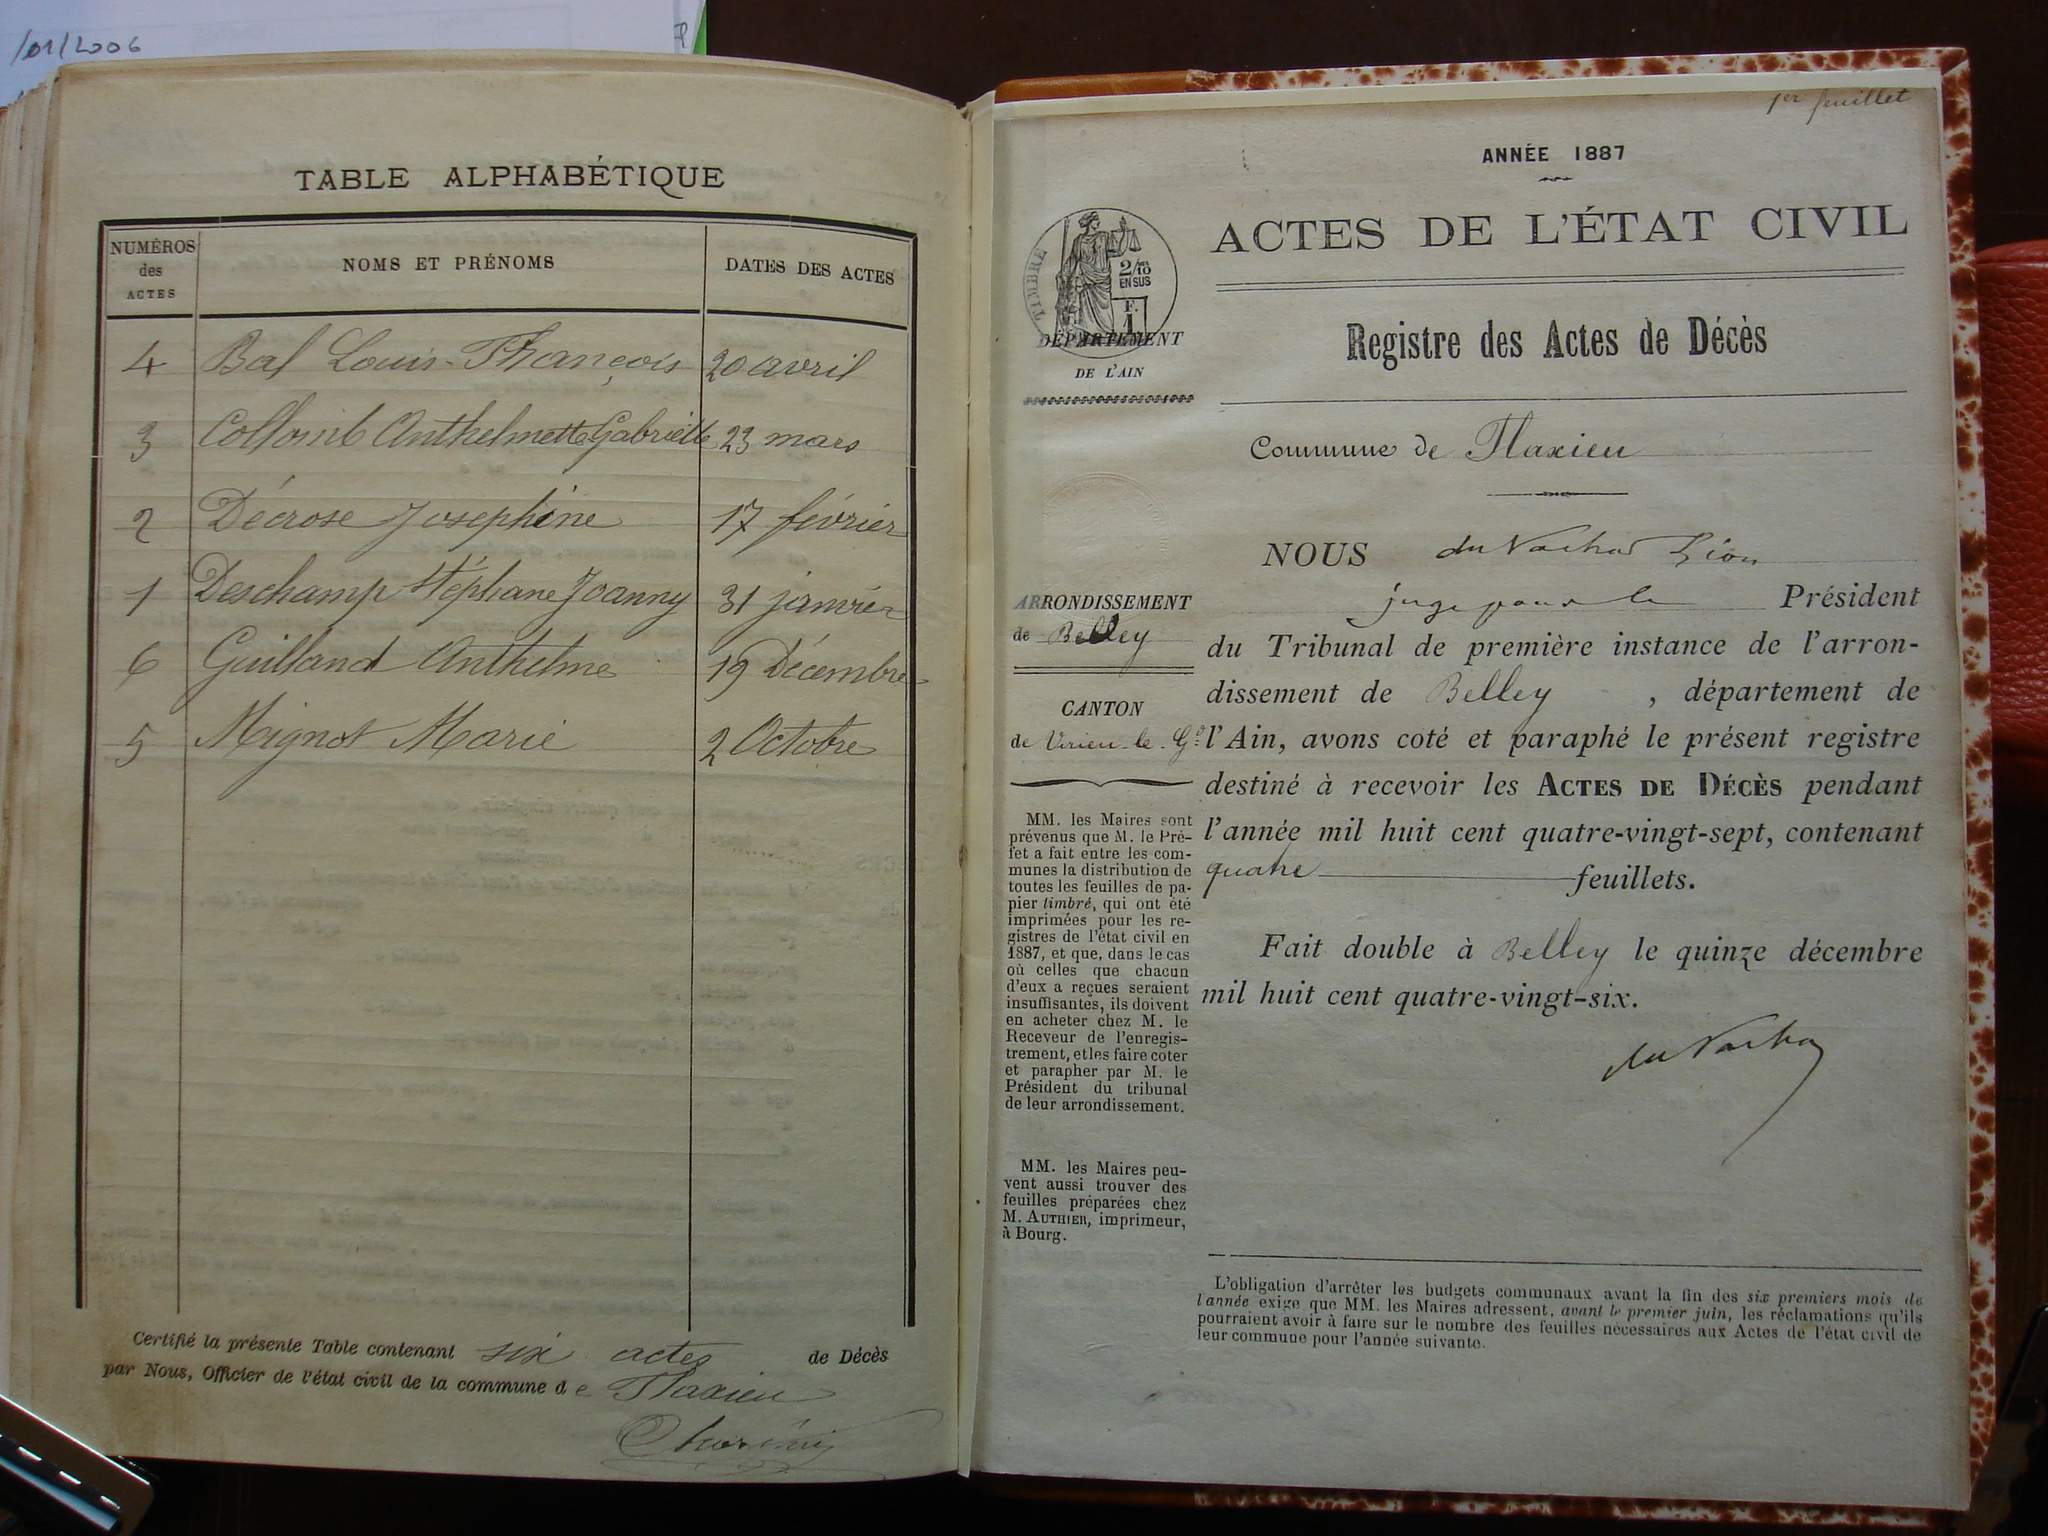 /01/2006
TABLE ALPHABÉTIQUE
NUMÉROS des ACTES
NOMS ET PRÉNOMS
DATES DES ACTES
4 Bal Louis-François 20 avril
3 Collomb Anthelmette Gabrielle 23 mars
2 Décrose Joséphine 17 février
1 Deschamp Stéphane Joanny 31 janvier
6 Guilland Anthelme 19 Décembre
5 Mignot Marie 2 Octobre
Certifié la présente Table contenant six actes de Décès
par Nous, Officier de l'état civil de la commune de Flaxieu
1er feuillet
ANNÉE 1887
ACTES DE L'ÉTAT CIVIL
TIMBRE
2/10
EN SUS
F.
1
DÉPARTEMENT
DE L'AIN
Registre des Actes de Décès
Commune de Flaxieu
ARRONDISSEMENT
de Belley
CANTON
de Virieu-le-Gd
MM. les Maires sont
prévenus que M. le Pré-
fet a fait entre les com-
munes la distribution de
toutes les feuilles de pa-
pier timbré, qui ont été
imprimées pour les re-
gistres de l'état civil en
1887, et que, dans le cas
où celles que chacun
d'eux a reçues seraient
insuffisantes, ils doivent
en acheter chez M. le
Receveur de l'enregis-
trement, et les faire coter
et parapher par M. le
Président du tribunal
de leur arrondissement.
MM. les Maires peu-
vent aussi trouver des
feuilles préparées chez
M. AUTHIER, imprimeur,
à Bourg.
NOUS du Vachat
juge pour le Président
du Tribunal de première instance de l'arron-
dissement de Belley , département de
l'Ain, avons coté et paraphé le présent registre
destiné à recevoir les ACTES DE DÉCÈS pendant
l'année mil huit cent quatre-vingt-sept, contenant
quatre feuillets.
Fait double à Belley le quinze décembre
mil huit cent quatre-vingt-six.
du Vachat
L'obligation d'arrêter les budgets communaux avant la fin des six premiers mois de
l'année exige que MM. les Maires adressent, avant le premier juin, les réclamations qu'ils
pourraient avoir à faire sur le nombre des feuilles nécessaires aux Actes de l'état civil de
leur commune pour l'année suivante.